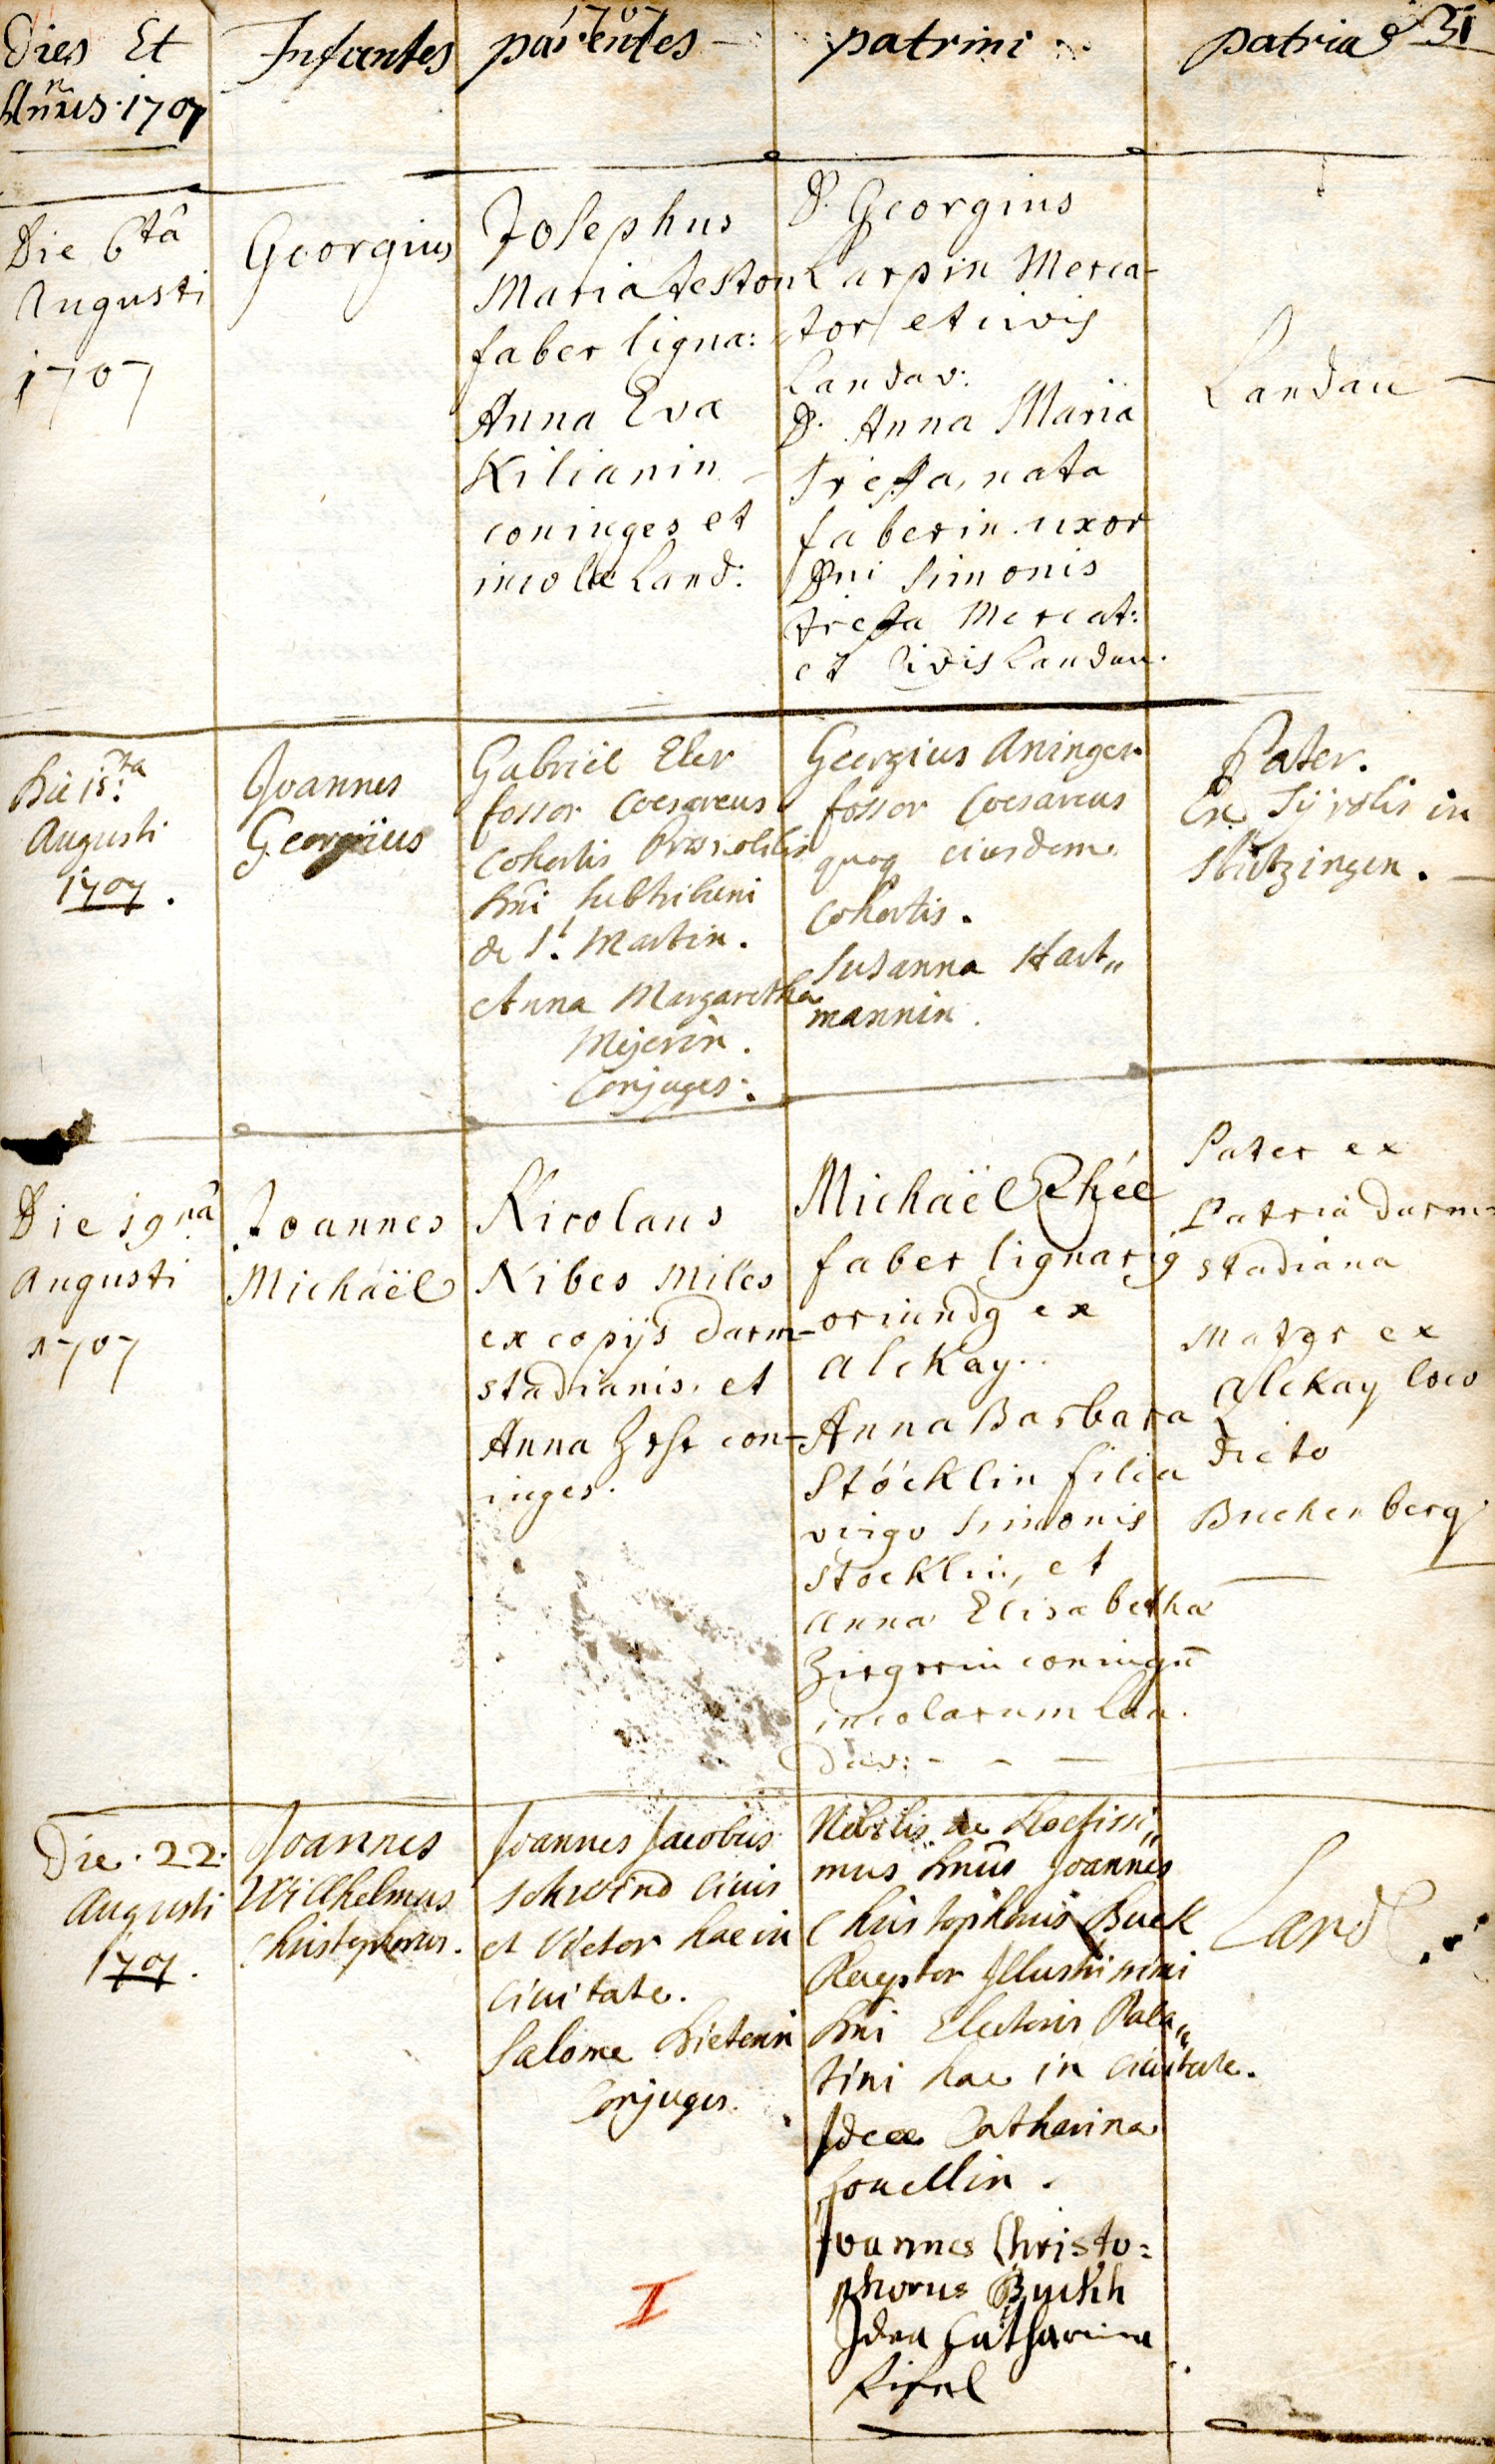 1707
Dies Et
Annus 1707
Infantes
parentes
patrini
patria
31
Die 6ta
Augusti
1707
Georgius
Josephus
Maria Teston
faber ligna:
Anna Eva
Kilianin
coniuges et
incolæ Land:
D. Georgius
Larpin Merca-
tor et civis
Landav:
D. Anna Maria
nata
faberin uxor
Dni Simonis
Mercat:
et Civis Landau.
Landau
Die 15ta
Augusti
1707.
Joannes
Georgius
Gabriël Eler
fossor Coesareus
Cohortis
Dni subtribuni
de St. Martin.
Anna Margaretha
Meijerin.
Conjuges.
Georgius Aninger
fossor Coesareus
quoq eiusdem
Cohortis.
Susanna Hart„
mannin.
Pater.
Ex Tÿrolis in
Stutzingen.
Die 19na
Augusti
1707
Joannes
Michaël
Nicolaus
Nibes Miles
ex copijs Darm-
stadianis. et
Anna con-
iuges.
Michaël
faber lignarig
oriundg ex
alckay..
Anna Barbara
Stöcklin filia
virgo Simonis
Stöcklin, et
Anna Elisabetha
coniugū
incolarum Lan.
dav: - - -
Pater ex
Patria darm=
stadiana
Mater ex
alckay loco
dicto
Buchenberg
Die. 22.
Augusti
1707.
Joannes
Willhelmus
Christophorus.
Joannes Jacobus
schwind Civis
et Vietor hac in
Civitate.
Salome Dieterin
Conjuges.
Nobilis ac
mus Dnus Joannes
Christophorus Buck
Receptor Illustrissimi
Dni Electoris Pala„
tini hac in Civitate.
Idea Catharina
Joannes Christo=
phorus Buckh
Idea Catharina
Land
I